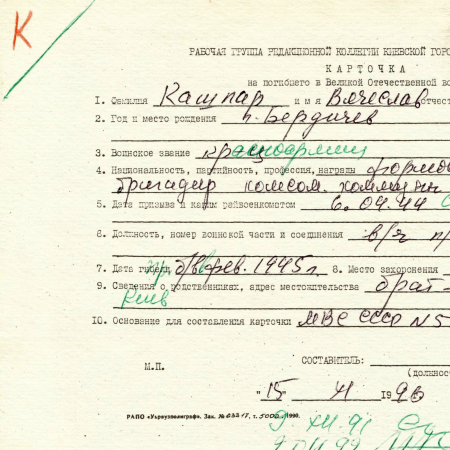 К
РАБОЧАЯ ГРУППА РЕДАКЦИОННОЙ КОЛЛЕГИИ КИЕВСКОЙ ГОРО
КАРТОЧКА
на погибшего в Великой Отечественной во
1. Фамилия Кашпар имя Вячеслав отчест
2. Год и место рождения г. Бердичев
3. Воинское звание красноармеец
4. Национальность, партийность, профессия, награды
бригадир комсом.
5. Дата призыва и каким райвоенкоматом 6.04.44
6. Должность, номер воинской части и соединения в/ч п/
7. Дата гибели фев. 1945 г. 8. Место захоронения
9. Сведения о родственниках, адрес местожительства брат-
Киев
10. Основание для составления карточки МВС СССР N 5
М.П.
СОСТАВИТЕЛЬ:
(должнос
"15" XI 1990
РАПО «Укрвузполиграф». Зак. т. 5000 1990.
9.XII.91